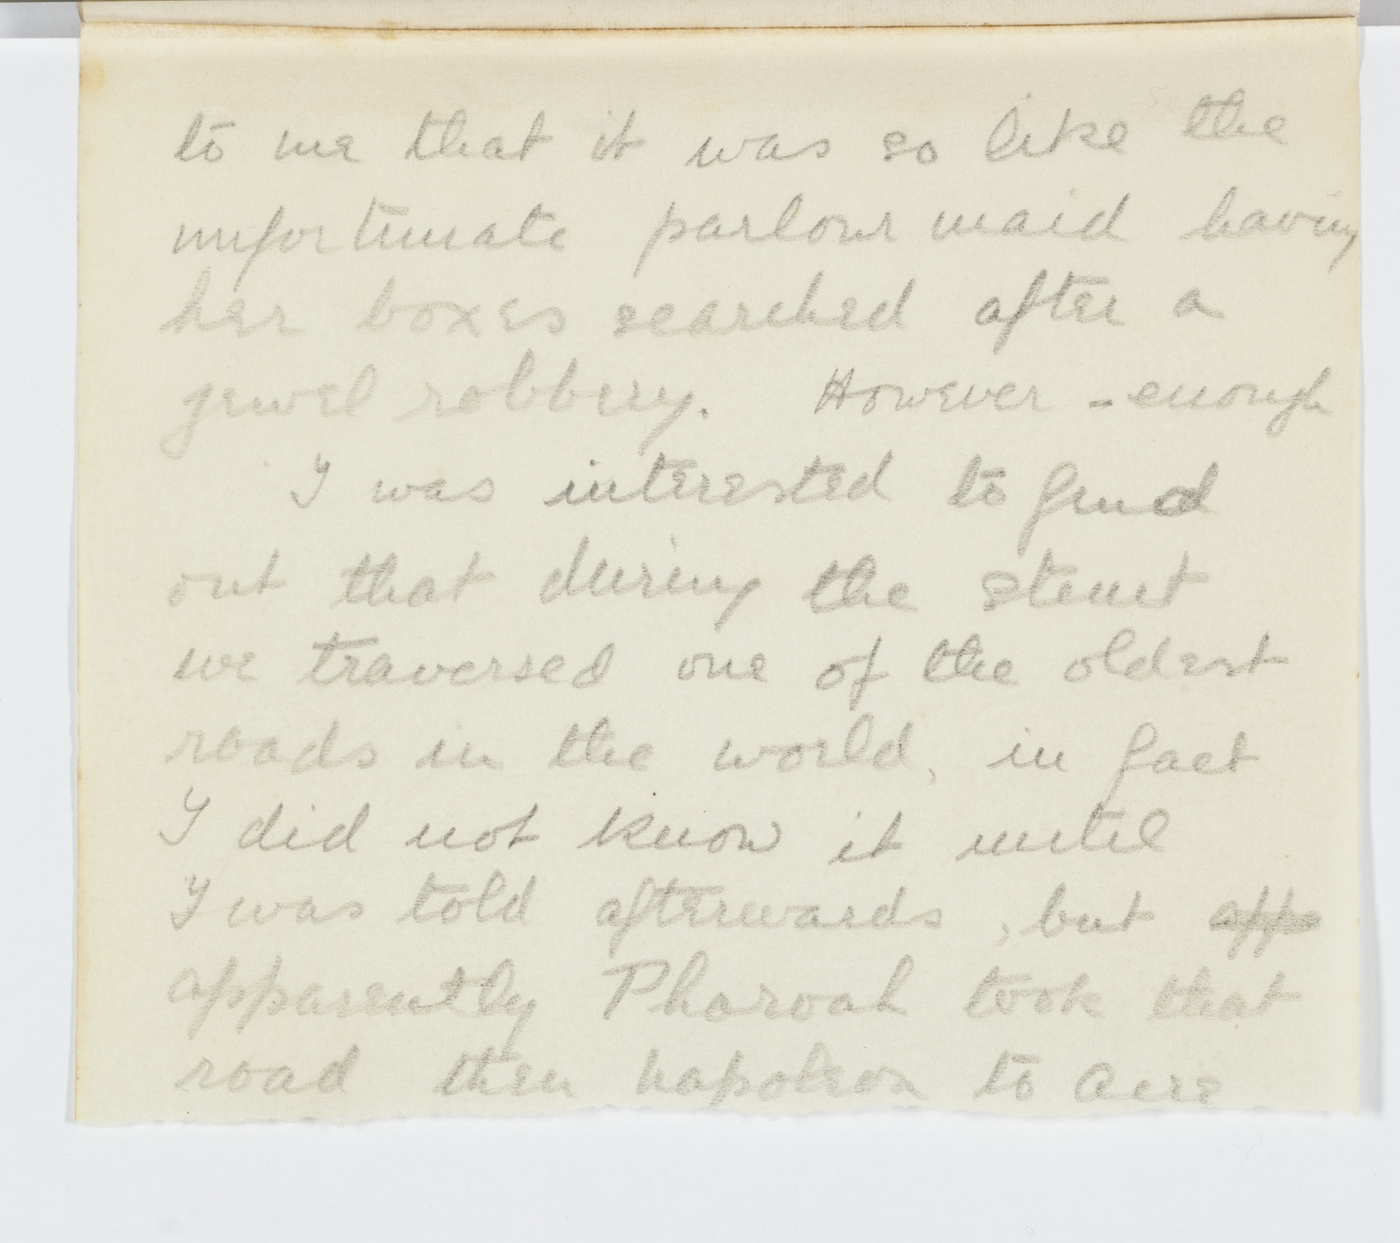 to me that it was so like the
unfortunate parlour maid having
her boxes searched after a
jewel robbery. However - enough
I was interested to find
out that during the stunt
we traversed one of the oldest
roads in the world, in fact
I did not know it until
I was told afterwards, but appa
apparently Pharoah took that
road then Napoleon to Acre